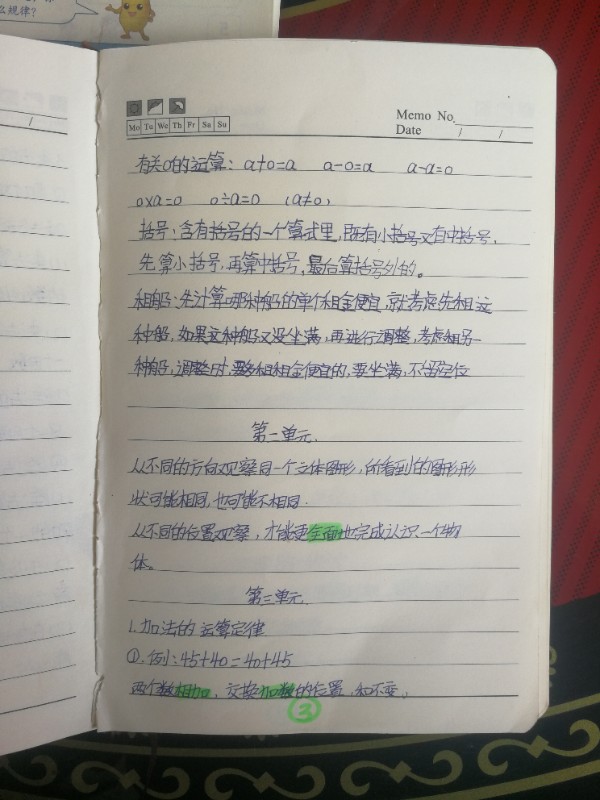 么规律?
Mo Tu We Th Fr Sa Su
Memo No.
Date / /
有关0的运算: a+0=a a-0=a a-a=0
0×a=0 0÷a=0 (a≠0)
括号:含有括号的一个算式里,既有小括号又有中括号,
先算小括号,再算中括号,最后算括号外的。
租船:先计算哪种船的单个租金便宜,就考虑先租这
种船,如果这种船又没坐满,再进行调整,考虑租另一
种船,调整时要多租租金便宜的,要坐满,不留空位
第二单元.
从不同的方向观察同一个立体图形,所看到的图形形
状可能相同,也可能不相同.
从不同的位置观察,才能更全面地完成认识一个物
体。
第三单元.
1.加法的运算定律
①.例:45+40=40+45
两个数相加,交换加数的位置,和不变。
③